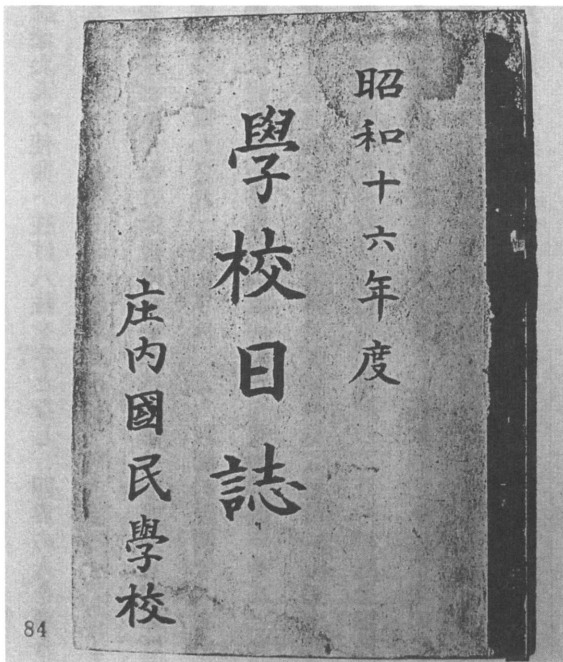 昭和十六年度
學校日誌
庄内國民學校
84